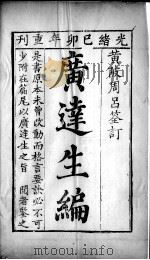 光緒己卯年重刊
黃巖周呂筌訂
廣達生編
是書原本未曾改動而格言要訣必不可
少附在篇尾以廣達生之旨 閱者鑒之
mtoou.info